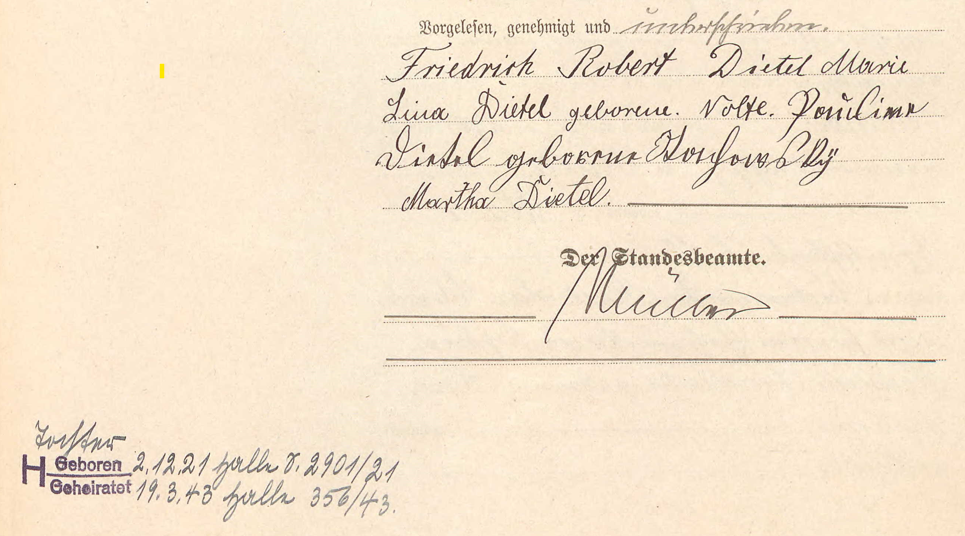 Vorgelesen, genehmigt und unterschrieben.
Friedrich Robert Dietel Marie
Lina Dietel geborene. Nolte. Pauline
Dietel geborene
Martha Dietel.
Der Standesbeamte.
Müller
Tochter
H Geboren 2.12.21 Halle S. 2901/21
Geheiratet 19.3.43 Halle 356/43.